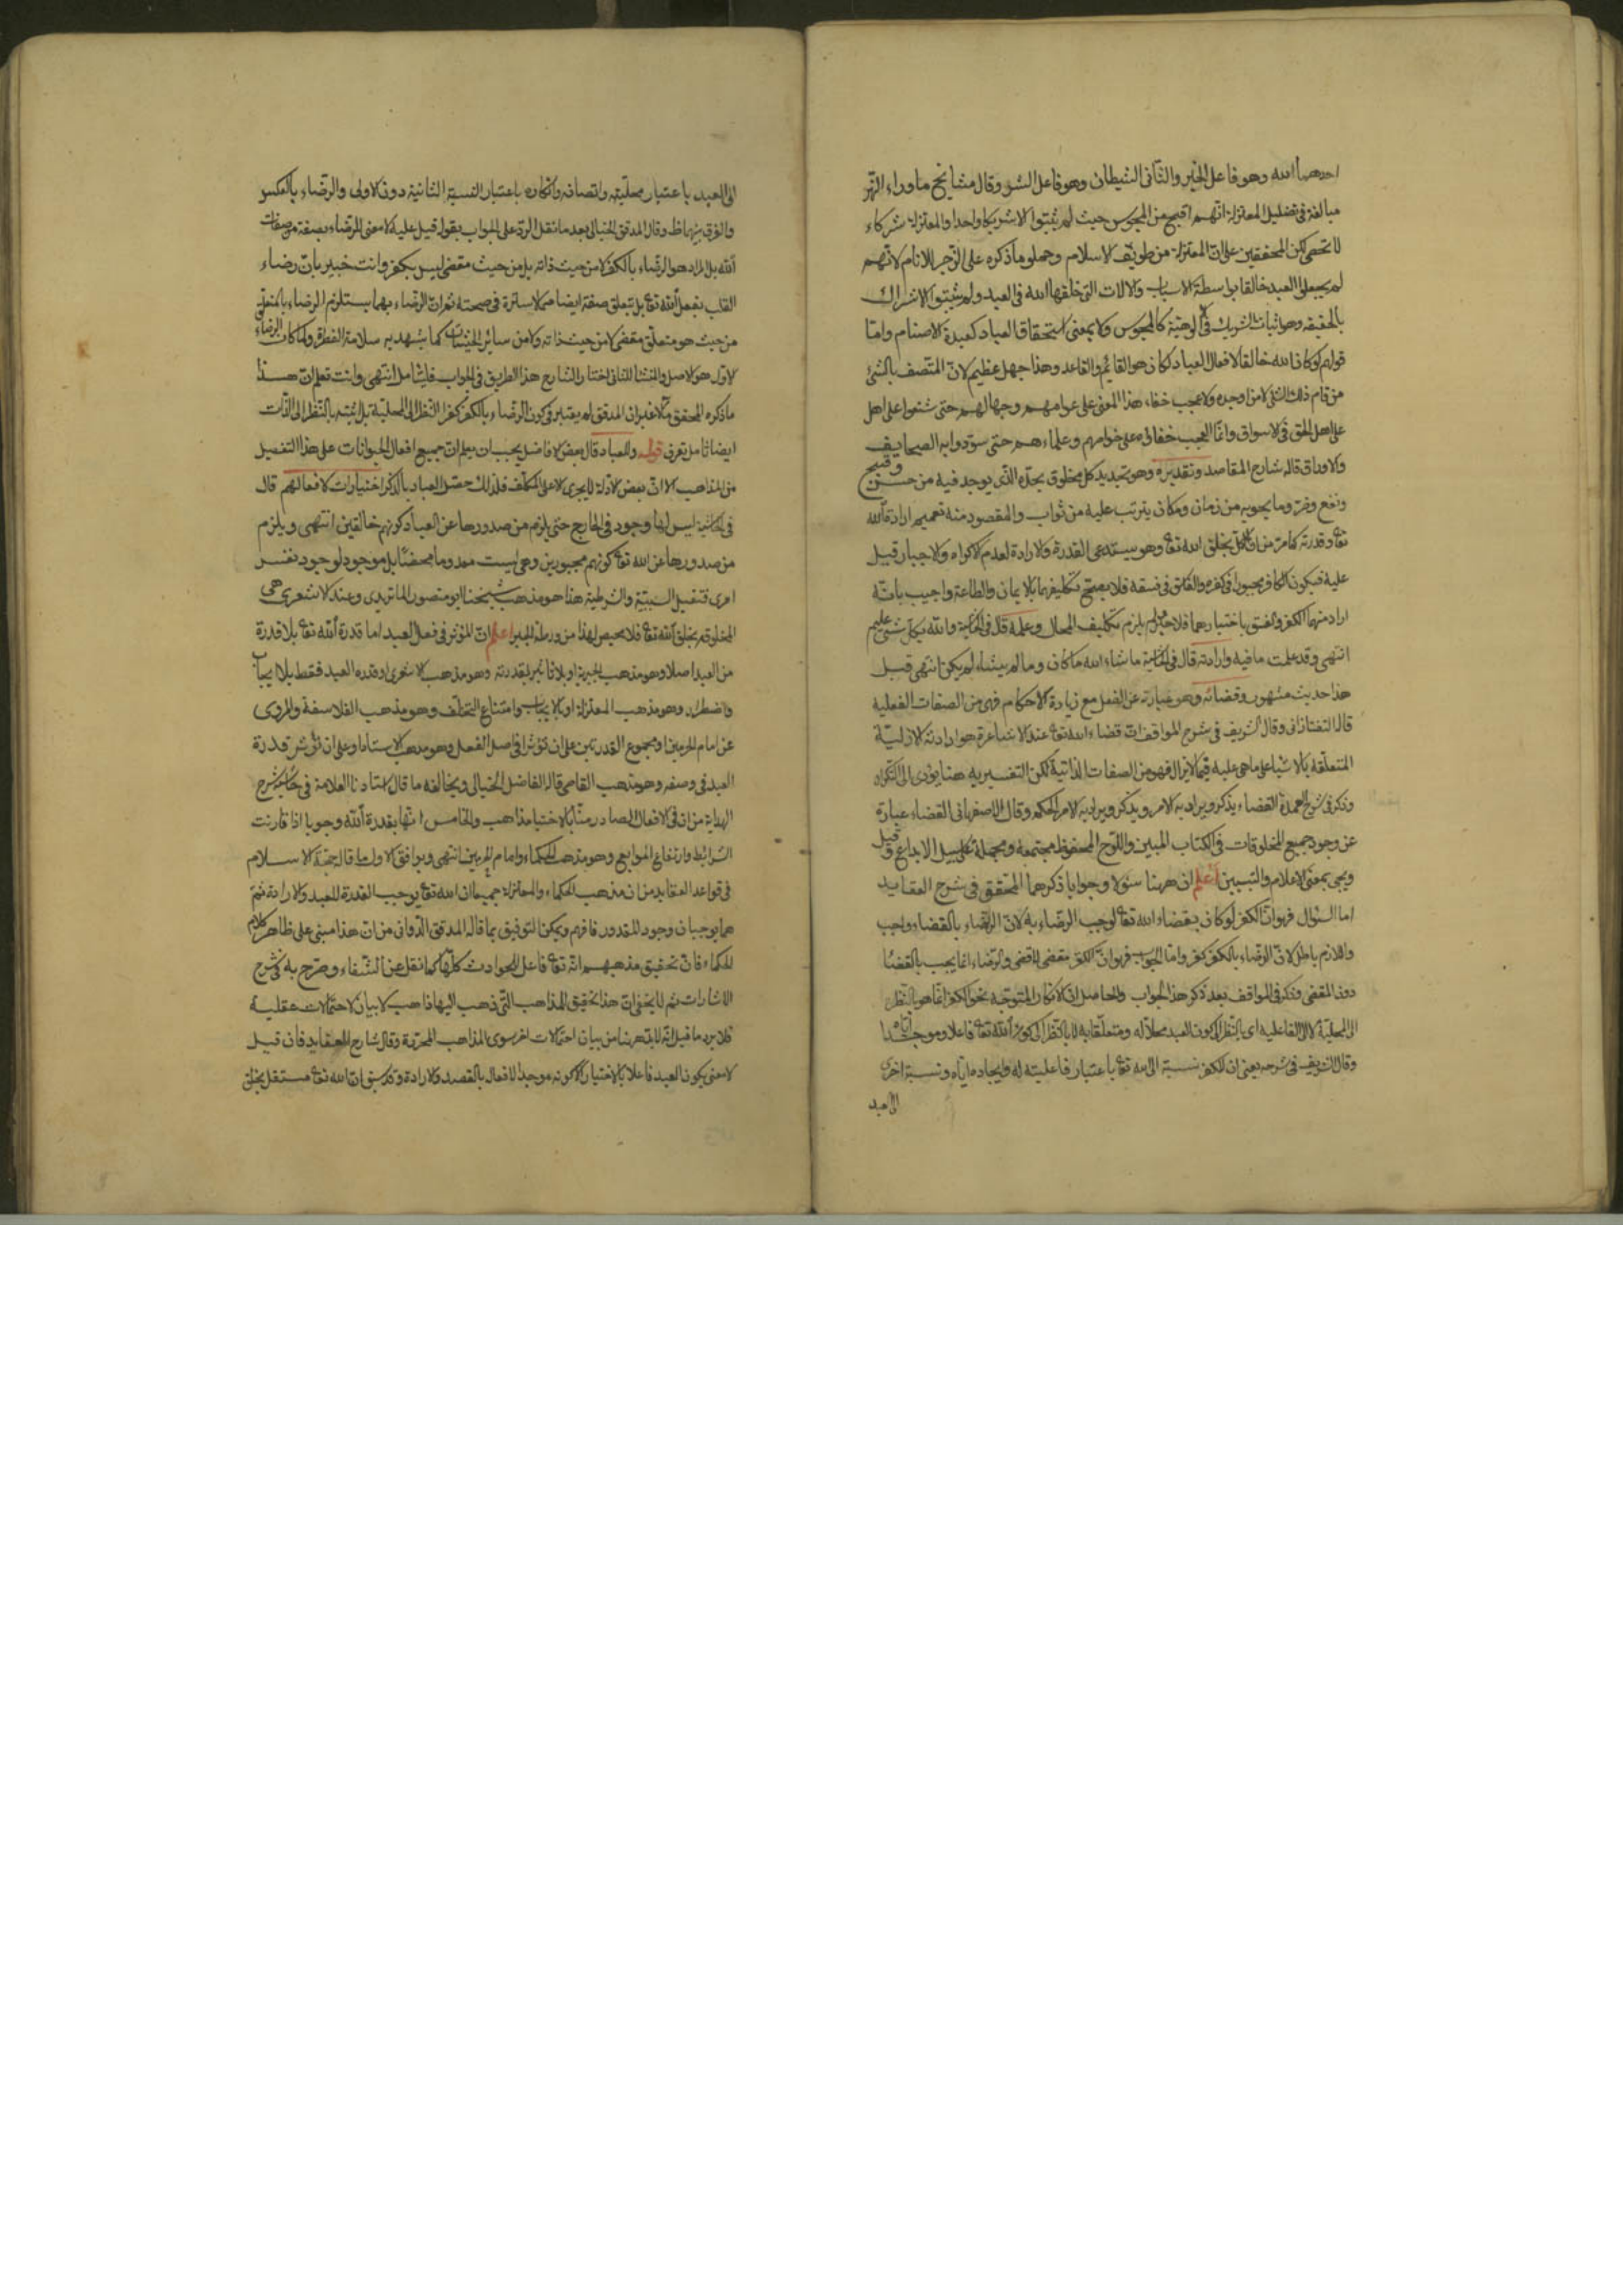 احدهما الله وهو فاعل الخير والثاني الشيطان وهو فاعل الشر وقال مشايخ ماوراء النهر
مبالغة في تضليل المعتزلة انهم اقبح من المجوس حيث لم يثبتوا الا شريكا واحدا والمعتزلة شركاء
لا تحصى لكن المحققين على ان المعتزلة من طوايف الاسلام وحملوا ما ذكره على الزجر للانام لانهم
لم يجعلوا العبد خالقا بواسطة الاسباب والالات التي خلقها الله في العبد ولم يثبتوا الاشراك
بالحقيقة وهو اثبات الشريك في الالوهية كالمجوس ولا بمعنى استحقاق العباد كعبدة الاصنام واما
قولهم لو كان الله خالقا لافعال العباد لكان هو القائم والقاعد وهذا جهل عظيم لان المتصف بالشئ
من قام ذلك الشئ لا من اوجده ولا عجب خفاء هذا المعنى على عوامهم وجهالهم حتى شنعوا على اهل
على اهل الحق في الاسواق وانما العجب خفائه على خواصهم وعلماءهم حتى سودوا به الصحايف
والاوراق قاله شارح المقاصد وتقديره وهو تحديد كل مخلوق بحده الذي يوجد فيه من حسن وقبح
ونفع وضر وما يحويه من زمان ومكان يترتب عليه من ثواب والمقصود منه تعميم ارادة الله
تع وقدرته كما مر من ان الكل بخلق الله تع وهو يستدعى القدرة والارادة لعدم الاكراه والاجبار قيل
عليه فيكون الكافر مجبورا في كفره والفاسق في فسقه فلا يصح تكليفهما بالايمان والطاعة واجيب بانه
اراد منهما الكفر والفسق باختيارهما فلا جبر ولم يلزم تكليف المحال وعلمه قال في الحاشية والله بكل شئ عليم
انتهى وقد علمت ما فيه وارادته قال في الحاشية ما شاء الله ما كان وما لم يشاء لم يكن انتهى قيل
هذا حديث مشهور وقضائه وهو عبارة عن الفعل مع زيادة الاحكام فهى من الصفات الفعلية
قال التفتازاني وقال الشريف في شرح المواقف ان قضاء الله تع عند الاشاعرة هو ارادته الازلية
المتعلقة بالاشياء على ما هى عليه فيما لا يزال فهو من الصفات الذاتية لكن التفسير به هنا يؤدى الى التكرار
وذكر في شرح العمدة القضاء يذكر ويراد به الامر ويذكر ويراد به الحكم وقال الاصفهاني القضاء عبارة
عن وجود جميع المخلوقات في الكتاب المبين واللوح المحفوظ مجتمعة ومجملة على سبيل الابداع وقيل
ويجئ بمعنى الاعلام والتبيين اعلم ان ههنا سؤلا وجوابا ذكرهما المحقق في شرح العقايد
اما السؤال فهو ان الكفر لو كان بقضاء الله تع لوجب الرضاء به لان الرضاء بالقضاء واجب
واللازم باطل لان الرضاء بالكفر كفر واما الجواب فهو ان الكفر مقضى لا قضى والرضاء انما يجب بالقضا
دون المقضى وذكر في المواقف بعد ذكر هذا الجواب والحاصل ان الانكار المتوجه نحو الكفر انما هو بالنظر
الى المحلية لا الى الفاعلية اى بالنظر الى كون العبد محلا له ومتعلقا به لا بالنظر الى كون الله تع فاعلا وموجدا اياه
وقال الشريف في شرحه يعني ان للكفر نسبة الى الله تع باعتبار فاعليته له وايجاده اياه ونسبة اخرى
الى العبد
الى العبد باعتبار محليته واتصافه وانكاره باعتبار النسبة الثانية دون الاولى والرضاء بالعكس
والفرق بينهما ظ وقال المدقق الخيالى بعد ما نقل الرد على الجواب بقوله قيل عليه لا معنى للرضاء بصفة من صفات
الله بل المراد هو الرضاء بالكفر لا من حيث ذاته بل من حيث مقضى ليس بكفر وانت خبير بان رضاء
القلب بفعل الله تع بل بتعلق صفة ايضا مما لا سترة في صحته ثم ان الرضاء بهما يستلزم الرضاء بالمتعلق
من حيث هو متعلق مقضى لا من حيث ذاته ولا من سائر الحيثيات كما يشهد به سلامة الفطرة ولما كان الرضاء
الاول هو الاصل والمنشأ للثاني اختار الشارح هذا الطريق في الجواب فليتأمل انتهى وانت تعلم ان هذا
ما ذكره المحقق غير ان المدقق لم يعتبر في كون الرضاء بالكفر كفرا النظر الى المحلية بل اثبته بالنظر الى الذات
ايضا تأمل تعرف قوله وللعباد قال بعض الافاضل يجب ان يعلم ان جميع افعال الحيوانات على هذا التفصيل
من المذاهب الا ان بعض الادلة لا يجرى الا على المكلف فلذلك خص العباد بالذكر اختيارات لافعالهم قال
في الحاشية ليس لها وجود في الخارج حتى يلزم من صدورها عن العباد كونهم خالقين انتهى ويلزم
من صدورها عن الله تع كونهم مجبورين وهى ليست معدوما محضا بل موجود لوجود نفس
امرى فتقبل السببية والشرطية هذا هو مذهب شيخنا ابو منصور الماتريدى وعند الاشعرى هى
المخلوقة بخلق الله تع فلا محيص لهذا من ورطة الجبر اعلم ان المؤثر في فعل العبد اما قدرة الله تع بلا قدرة
من العبد اصلا وهو مذهب الجبرية او بلا تاثير لقدرته وهو مذهب الاشعرى او قدرة العبد فقط بلا ايجاب
واضطرار وهو مذهب المعتزلة او بالايجاب وامتناع التخلف وهو مذهب الفلاسفة والمروى
عن امام الحرمين او مجموع القدرتين على ان تؤثرا في اصل الفعل وهو مذهب الاستاذ او على ان تؤثر قدرة
العبد في وصفه وهو مذهب القاضى قاله الفاضل الخيالى ويخالفه ما قال استادنا العلامة في حاشية شرح
الهداية من ان في الافعال الصادرة منا بالاختيار مذاهب والخامس انها بقدرة الله وجوبا اذا قارنت
الشرائط وارتفاع الموانع وهو مذهب الحكماء وامام الحرمين انتهى ويوافق الاول ما قاله حجة الاسلام
في قواعد العقايد من ان مذهب الحكماء والمعتزلة جميعا ان الله تع يوجب القدرة للعبد والارادة ثم
هما يوجبان وجود المقدور فافهم ويمكن التوفيق بما قاله المدقق الدوانى من ان هذا مبنى على ظاهر كلام
الحكماء فان تحقيق مذهبهم انه تع فاعل للحوادث كلها كما نقل عن الشفاء وصرح به في شرح
الاشارات ثم لا يخفى ان هذا تحقيق المذاهب التي ذهب اليها ذاهب لا بيان الاحتمالات عقلية
فلا يرد ما قيل انه لا بد ههنا من بيان احتمالات اخر سوى المذاهب المحررة وقال شارح العقايد فان قيل
لا معنى بكون العبد فاعلا بالاختيار الا كونه موجدا لافعاله بالقصد والارادة وقد سبق ان الله تع مستقل بخلق